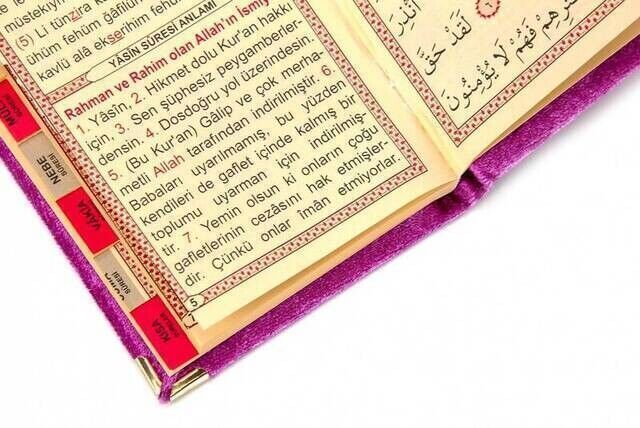 (5) Li tünzira
ühüm fehüm ğâfilûn
kavlü alâ ekserihim fehüm
YÂSİN SÛRESİ ANLAMI
Rahman ve Rahim olan Allah'ın İsmiy
1. Yâsîn, 2. Hikmet dolu Kur'an hakkı
için, 3. Sen şüphesiz peygamberler-
densin. 4. Dosdoğru yol üzerindesin.
5. (Bu Kur'an) Gâlip ve çok merha-
metli Allah tarafından indirilmiştir. 6.
Babaları uyarılmamış, bu yüzden
kendileri de gaflet içinde kalmış bir
toplumu uyarman için indirilmiş-
tir. 7. Yemin olsun ki onların çoğu
gafletlerinin cezâsını hak etmişler-
dir. Çünkü onlar îmân etmiyorlar.
5
لَقَدْ حَقَّ
فَهُمْ لَا يُؤْمِنُونَ
NEBE
SÛRESİ
VAKIA
SÛRESİ
KISA